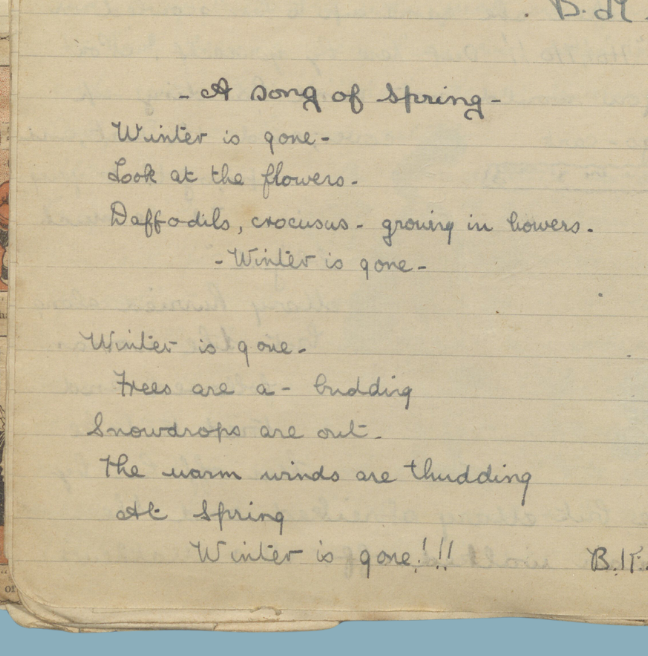 B.
- A song of Spring -
Winter is gone -
Look at the flowers -
Daffodils, crocusus - growing in bowers.
- Winter is gone -
Winter is gone.
Trees are a - budding
Snowdrops are out.
The warm winds are thudding
At Spring
Winter is gone!!!
B.K.